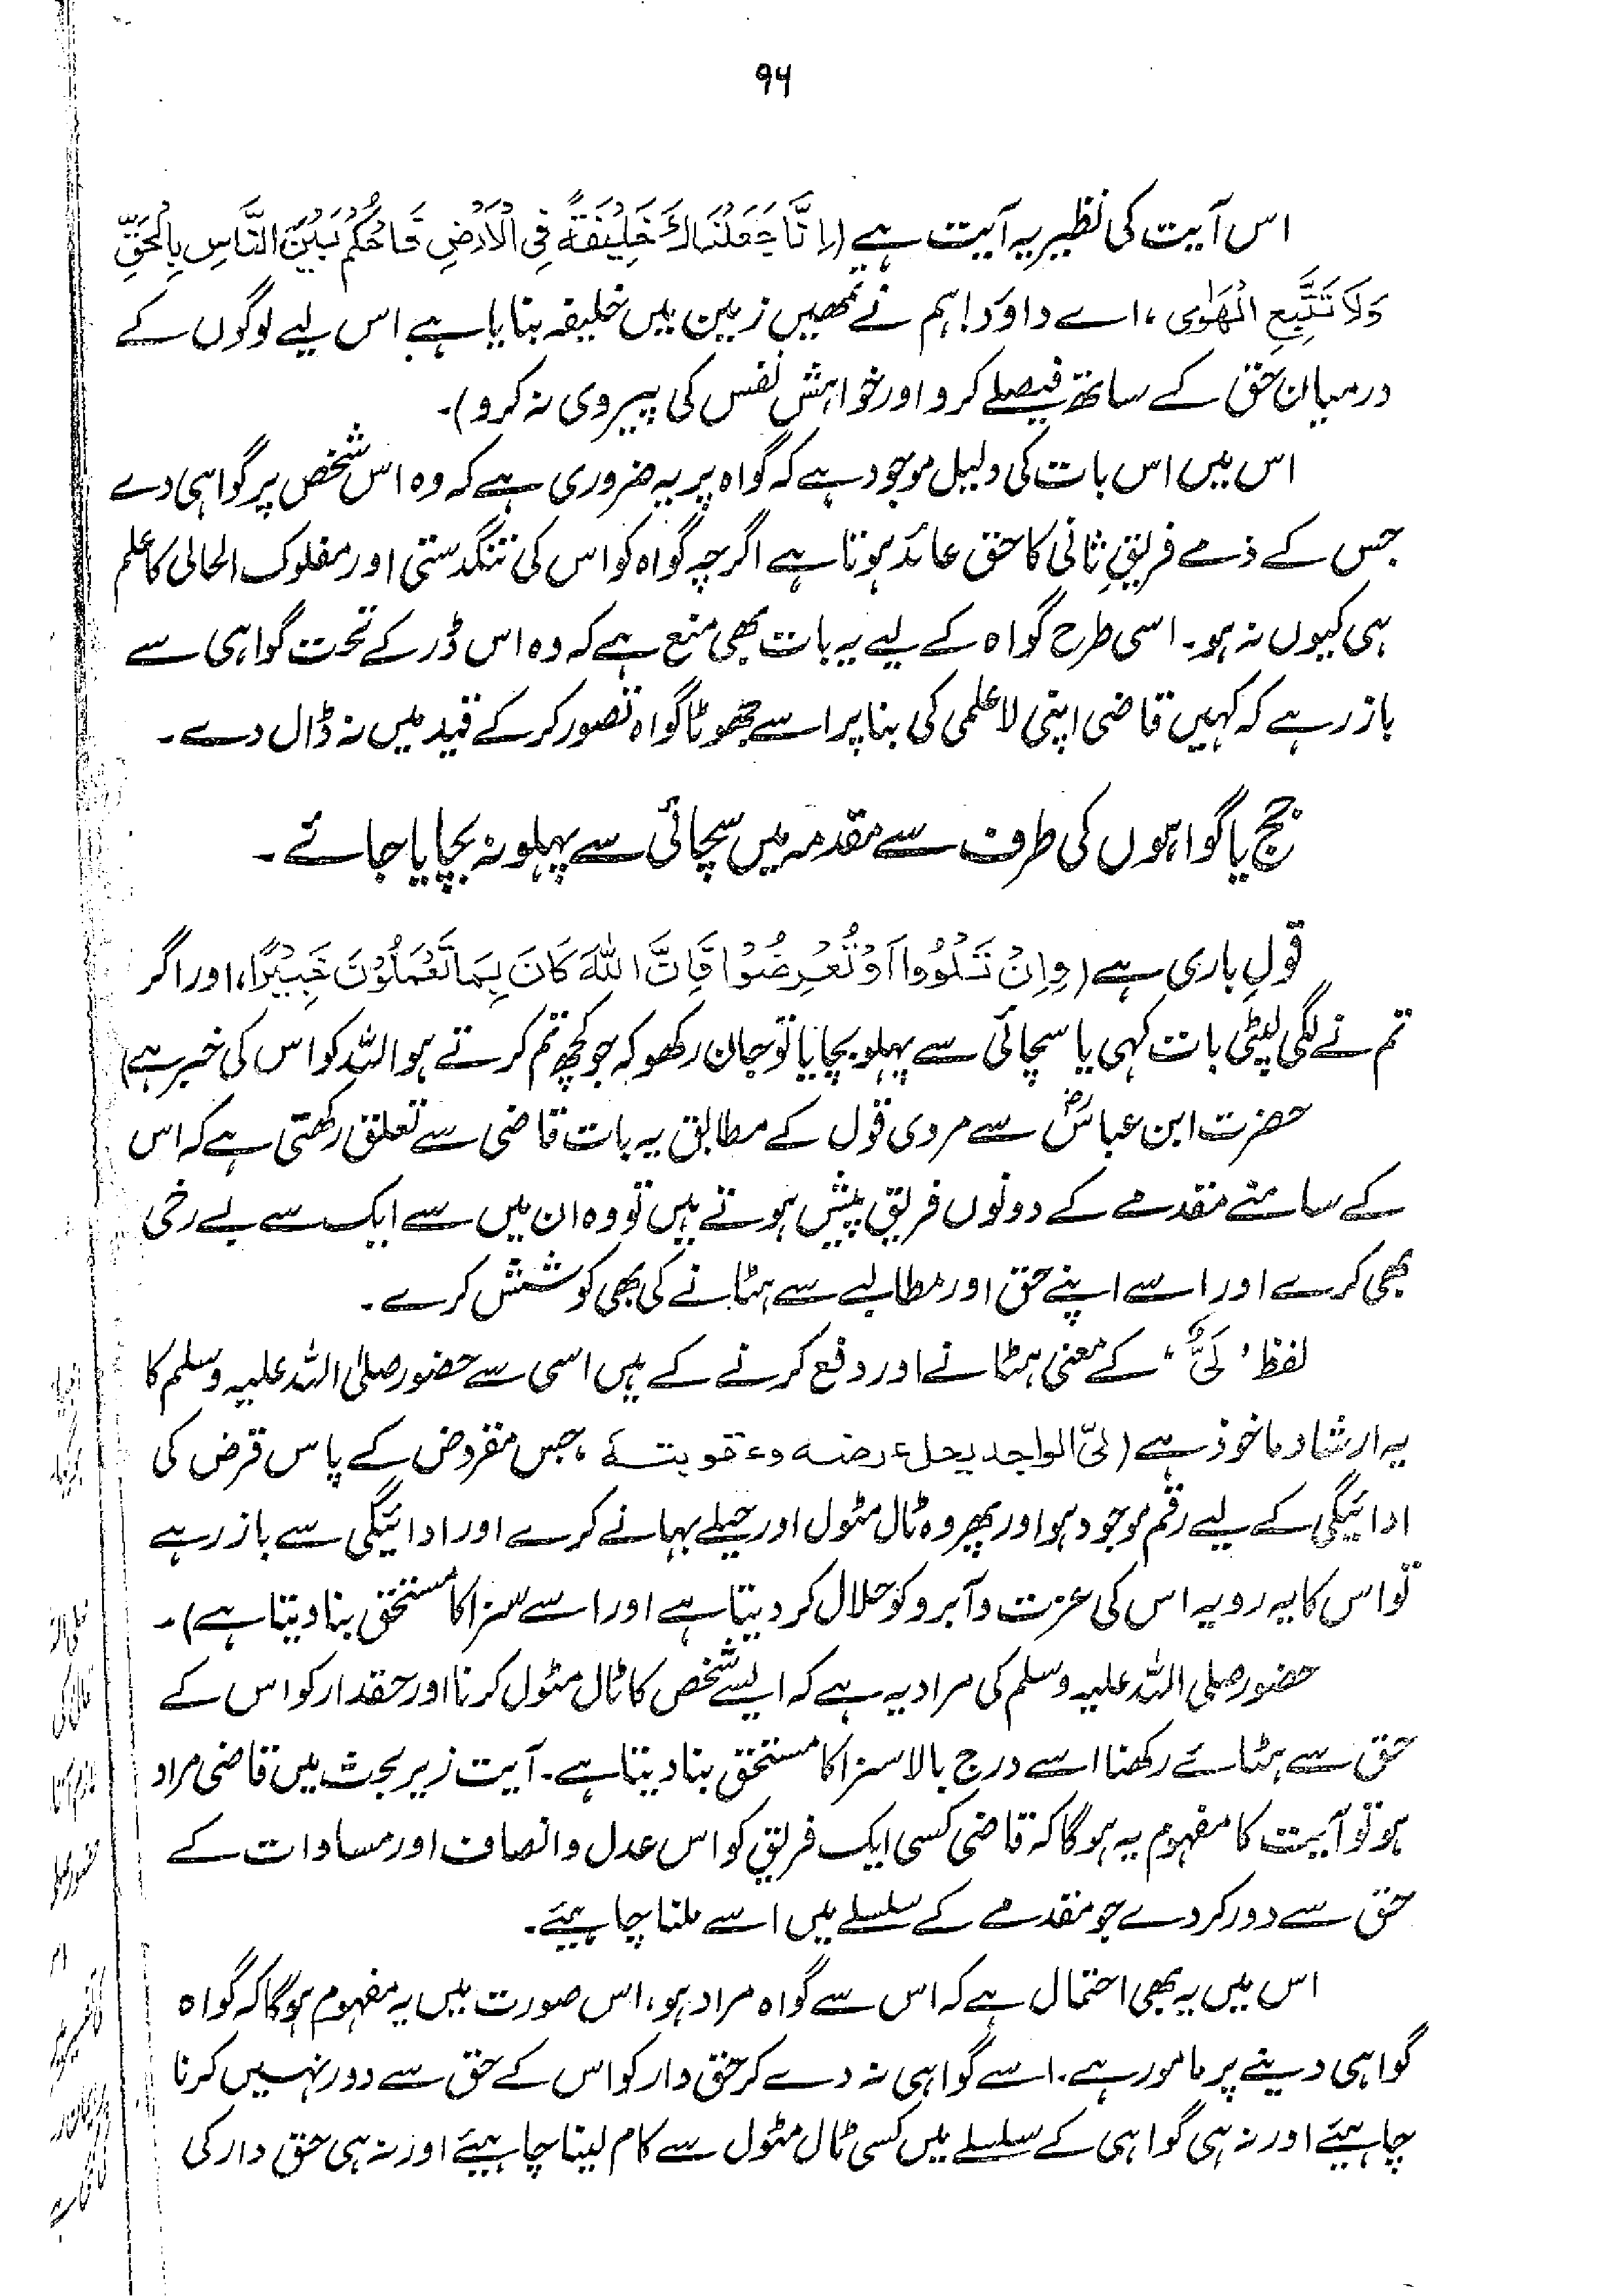 ۹۴
اس آیت کی نظیر یہ آیت ہے (اِنَّا جَعَلْنَاكَ خَلِيْفَةً فِي الْاَرْضِ فَاحْكُمْ بَيْنَ النَّاسِ بِالْحَقِّ
وَلَا تَتَّبِعِ الْهَوٰى، اے داؤد! ہم نے تمھیں زمین میں خلیفہ بنایا ہے اس لیے لوگوں کے
درمیان حق کے ساتھ فیصلے کرو اور خواہش نفس کی پیروی نہ کرو)۔
اس میں اس بات کی دلیل موجود ہے کہ گواہ پر یہ ضروری ہے کہ وہ اس شخص پر گواہی دے
جس کے ذمے فریقِ ثانی کا حق عائد ہوتا ہے اگرچہ گواہ کو اس کی تنگدستی اور مفلوک الحالی کا علم
ہی کیوں نہ ہو۔ اسی طرح گواہ کے لیے یہ بات بھی منع ہے کہ وہ اس ڈر کے تحت گواہی سے
باز رہے کہ کہیں قاضی اپنی لاعلمی کی بنا پر اسے جھوٹا گواہ تصور کر کے قید میں نہ ڈال دے۔
جج یا گواہوں کی طرف سے مقدمہ میں سچائی سے پہلو نہ بچایا جائے۔
قولِ باری ہے (وَاِنْ تَلْوُوا اَوْ تُعْرِضُوْا فَاِنَّ اللهَ كَانَ بِمَا تَعْمَلُوْنَ خَبِيْرًا، اور اگر
تم نے لگی لپٹی بات کہی یا سچائی سے پہلو بچایا تو جان رکھو کہ جو کچھ تم کرتے ہو اللہ کو اس کی خبر ہے)
حضرت ابن عباسؓ سے مروی قول کے مطابق یہ بات قاضی سے تعلق رکھتی ہے کہ اس
کے سامنے مقدمے کے دونوں فریق پیش ہوتے ہیں تو وہ ان میں سے ایک سے بے رخی
بھی کرے اور اسے اپنے حق اور مطالبے سے ہٹانے کی بھی کوشش کرے۔
لفظ ’لَيٌّ‘ کے معنی ہٹانے اور دفع کرنے کے ہیں اسی سے حضور صلی اللہ علیہ وسلم کا
یہ ارشاد ماخوذ ہے (لیّ الواجد يحل عرضه وعقوبته، جس مقروض کے پاس قرض کی
ادائیگی کے لیے رقم موجود ہو اور پھر وہ ٹال مٹول اور حیلے بہانے کرے اور ادائیگی سے باز رہے
تو اس کا یہ رویہ اس کی عزت و آبرو کو حلال کر دیتا ہے اور اسے سزا کا مستحق بنا دیتا ہے)۔
حضور صلی اللہ علیہ وسلم کی مراد یہ ہے کہ ایسے شخص کا ٹال مٹول کرنا اور حقدار کو اس کے
حق سے ہٹائے رکھنا اسے درج بالا سزا کا مستحق بنا دیتا ہے۔ آیت زیر بحث میں قاضی مراد
ہو تو آیت کا مفہوم یہ ہوگا کہ قاضی کسی ایک فریق کو اس عدل و انصاف اور مساوات کے
حق سے دور کر دے جو مقدمے کے سلسلے میں اسے ملنا چاہیئے۔
اس میں یہ بھی احتمال ہے کہ اس سے گواہ مراد ہو، اس صورت میں یہ مفہوم ہوگا کہ گواہ
گواہی دینے پر مامور ہے۔ اسے گواہی نہ دے کر حق دار کو اس کے حق سے دور نہیں کرنا
چاہیئے اور نہ ہی گواہی کے سلسلے میں کسی ٹال مٹول سے کام لینا چاہیئے اور نہ ہی حق دار کی